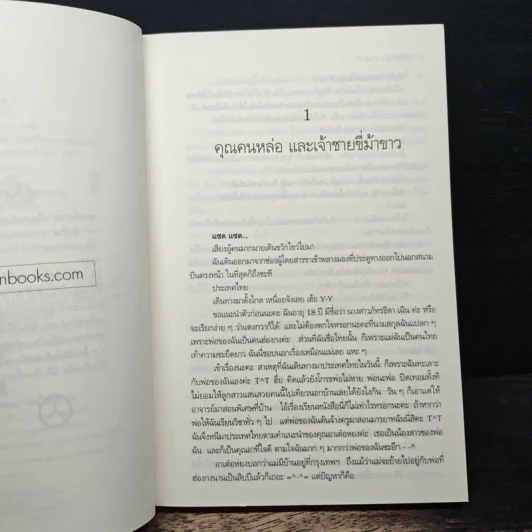 nbooks.com
1
คุณคนหล่อ และเจ้าชายขี่ม้าขาว
แซด แซด...
เสียงผู้คนมากมายเดินขวักไขว่ไปมา
ฉันเดินออกมาจากช่องผู้โดยสารขาเข้าพลางมองที่ประตูทางออกไปนอกสนาม
บินตรงหน้า ในที่สุดก็ถึงซะที
ประเทศไทย
เดินทางมาตั้งไกล เหนื่อยจังเลย เฮ้อ Y-Y
ขอแนะนำตัวก่อนนะคะ ฉันอายุ 18 ปี มีชื่อว่า นางสาวภัทรธิดา เฉิน ค่ะ หรือ
จะเรียกง่าย ๆ ว่าแตงกวาก็ได้ และไม่ต้องตกใจหรอกนะคะที่นามสกุลฉันแปลก ๆ
เพราะพ่อของฉันเป็นคนฮ่องกงค่ะ ส่วนที่ฉันชื่อไทยนั้น ก็เพราะแม่ฉันเป็นคนไทย
เท้าความซะยืดยาว ฉันนี่ชอบนอกเรื่องเหมือนแม่เลย แหะ ๆ
เข้าเรื่องนะคะ สาเหตุที่ฉันเดินทางมาประเทศไทยในวันนี้ ก็เพราะฉันทะเลาะ
กับพ่อของฉันเองค่ะ T^T ฮึ่ย คิดแล้วยังโกรธพ่อไม่หาย พ่อนะพ่อ ปิดเทอมทั้งที
ไม่ยอมให้ลูกสาวแสนสวยคนนี้ไปเที่ยวนอกบ้านเลยได้ยังไงกัน วัน ๆ ก็เอาแต่ให้
อาจารย์มาสอนพิเศษที่บ้าน ไอ้เรื่องเรียนหนังสือนี่ก็ไม่เท่าไรหรอกนะคะ ถ้าหากว่า
พ่อให้ฉันเรียนวิชาทั่ว ๆ ไป แต่พ่อของฉันดันจ้างครูมาสอนมารยาทฉันนี่สิคะ T^T
ฉันจึงหนีมาประเทศไทยตามคำแนะนำของคุณอาต่อหยงค่ะ เธอเป็นน้องสาวของพ่อ
ฉัน และก็เป็นคุณอาที่ใจดี ตามใจฉันมาก ๆ มากกว่าพ่อของฉันซะอีก ^-^
อาต่อหยงบอกว่าแม่มีบ้านอยู่ที่กรุงเทพฯ ถึงแม้ว่าแม่จะย้ายไปอยู่กับพ่อที่
ฮ่องกงนานเป็นสิบปีแล้วก็เถอะ =^-^= แต่ปัญหาก็คือ